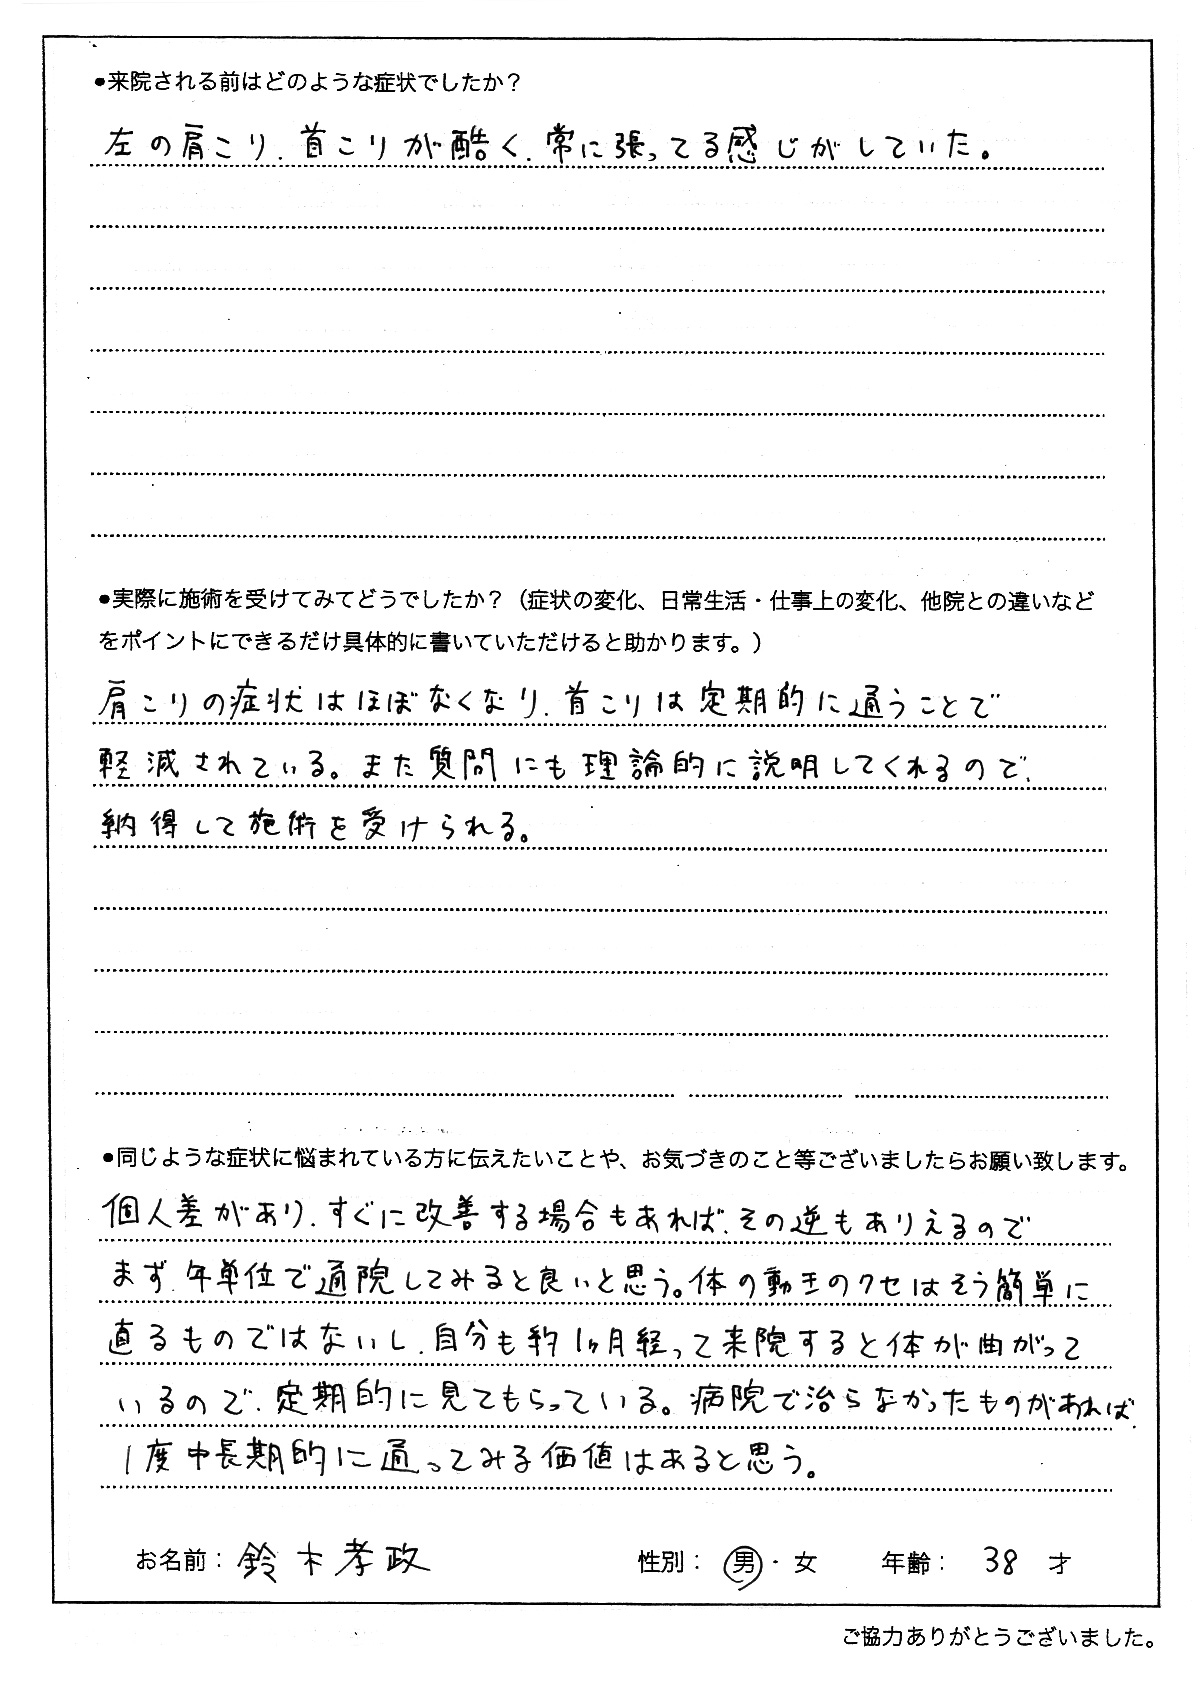 ●来院される前はどのような症状でしたか？
左の肩こり、首こりが酷く、常に張ってる感じがしていた。
●実際に施術を受けてみてどうでしたか？（症状の変化、日常生活・仕事上の変化、他院との違いなど
をポイントにできるだけ具体的に書いていただけると助かります。）
肩こりの症状はほぼなくなり、首こりは定期的に通うことで
軽減されている。また質問にも理論的に説明してくれるので、
納得して施術を受けられる。
●同じような症状に悩まれている方に伝えたいことや、お気づきのこと等ございましたらお願い致します。
個人差があり、すぐに改善する場合もあれば、その逆もありえるので
まず、年単位で通院してみると良いと思う。体の動きのクセはそう簡単に
直るものではないし、自分も約1ヶ月経って来院すると体が曲がって
いるので、定期的に見てもらっている。病院で治らなかったものがあれば、
1度中長期的に通ってみる価値はあると思う。
お名前：鈴木孝政 性別：男・女 年齢：38 才
ご協力ありがとうございました。